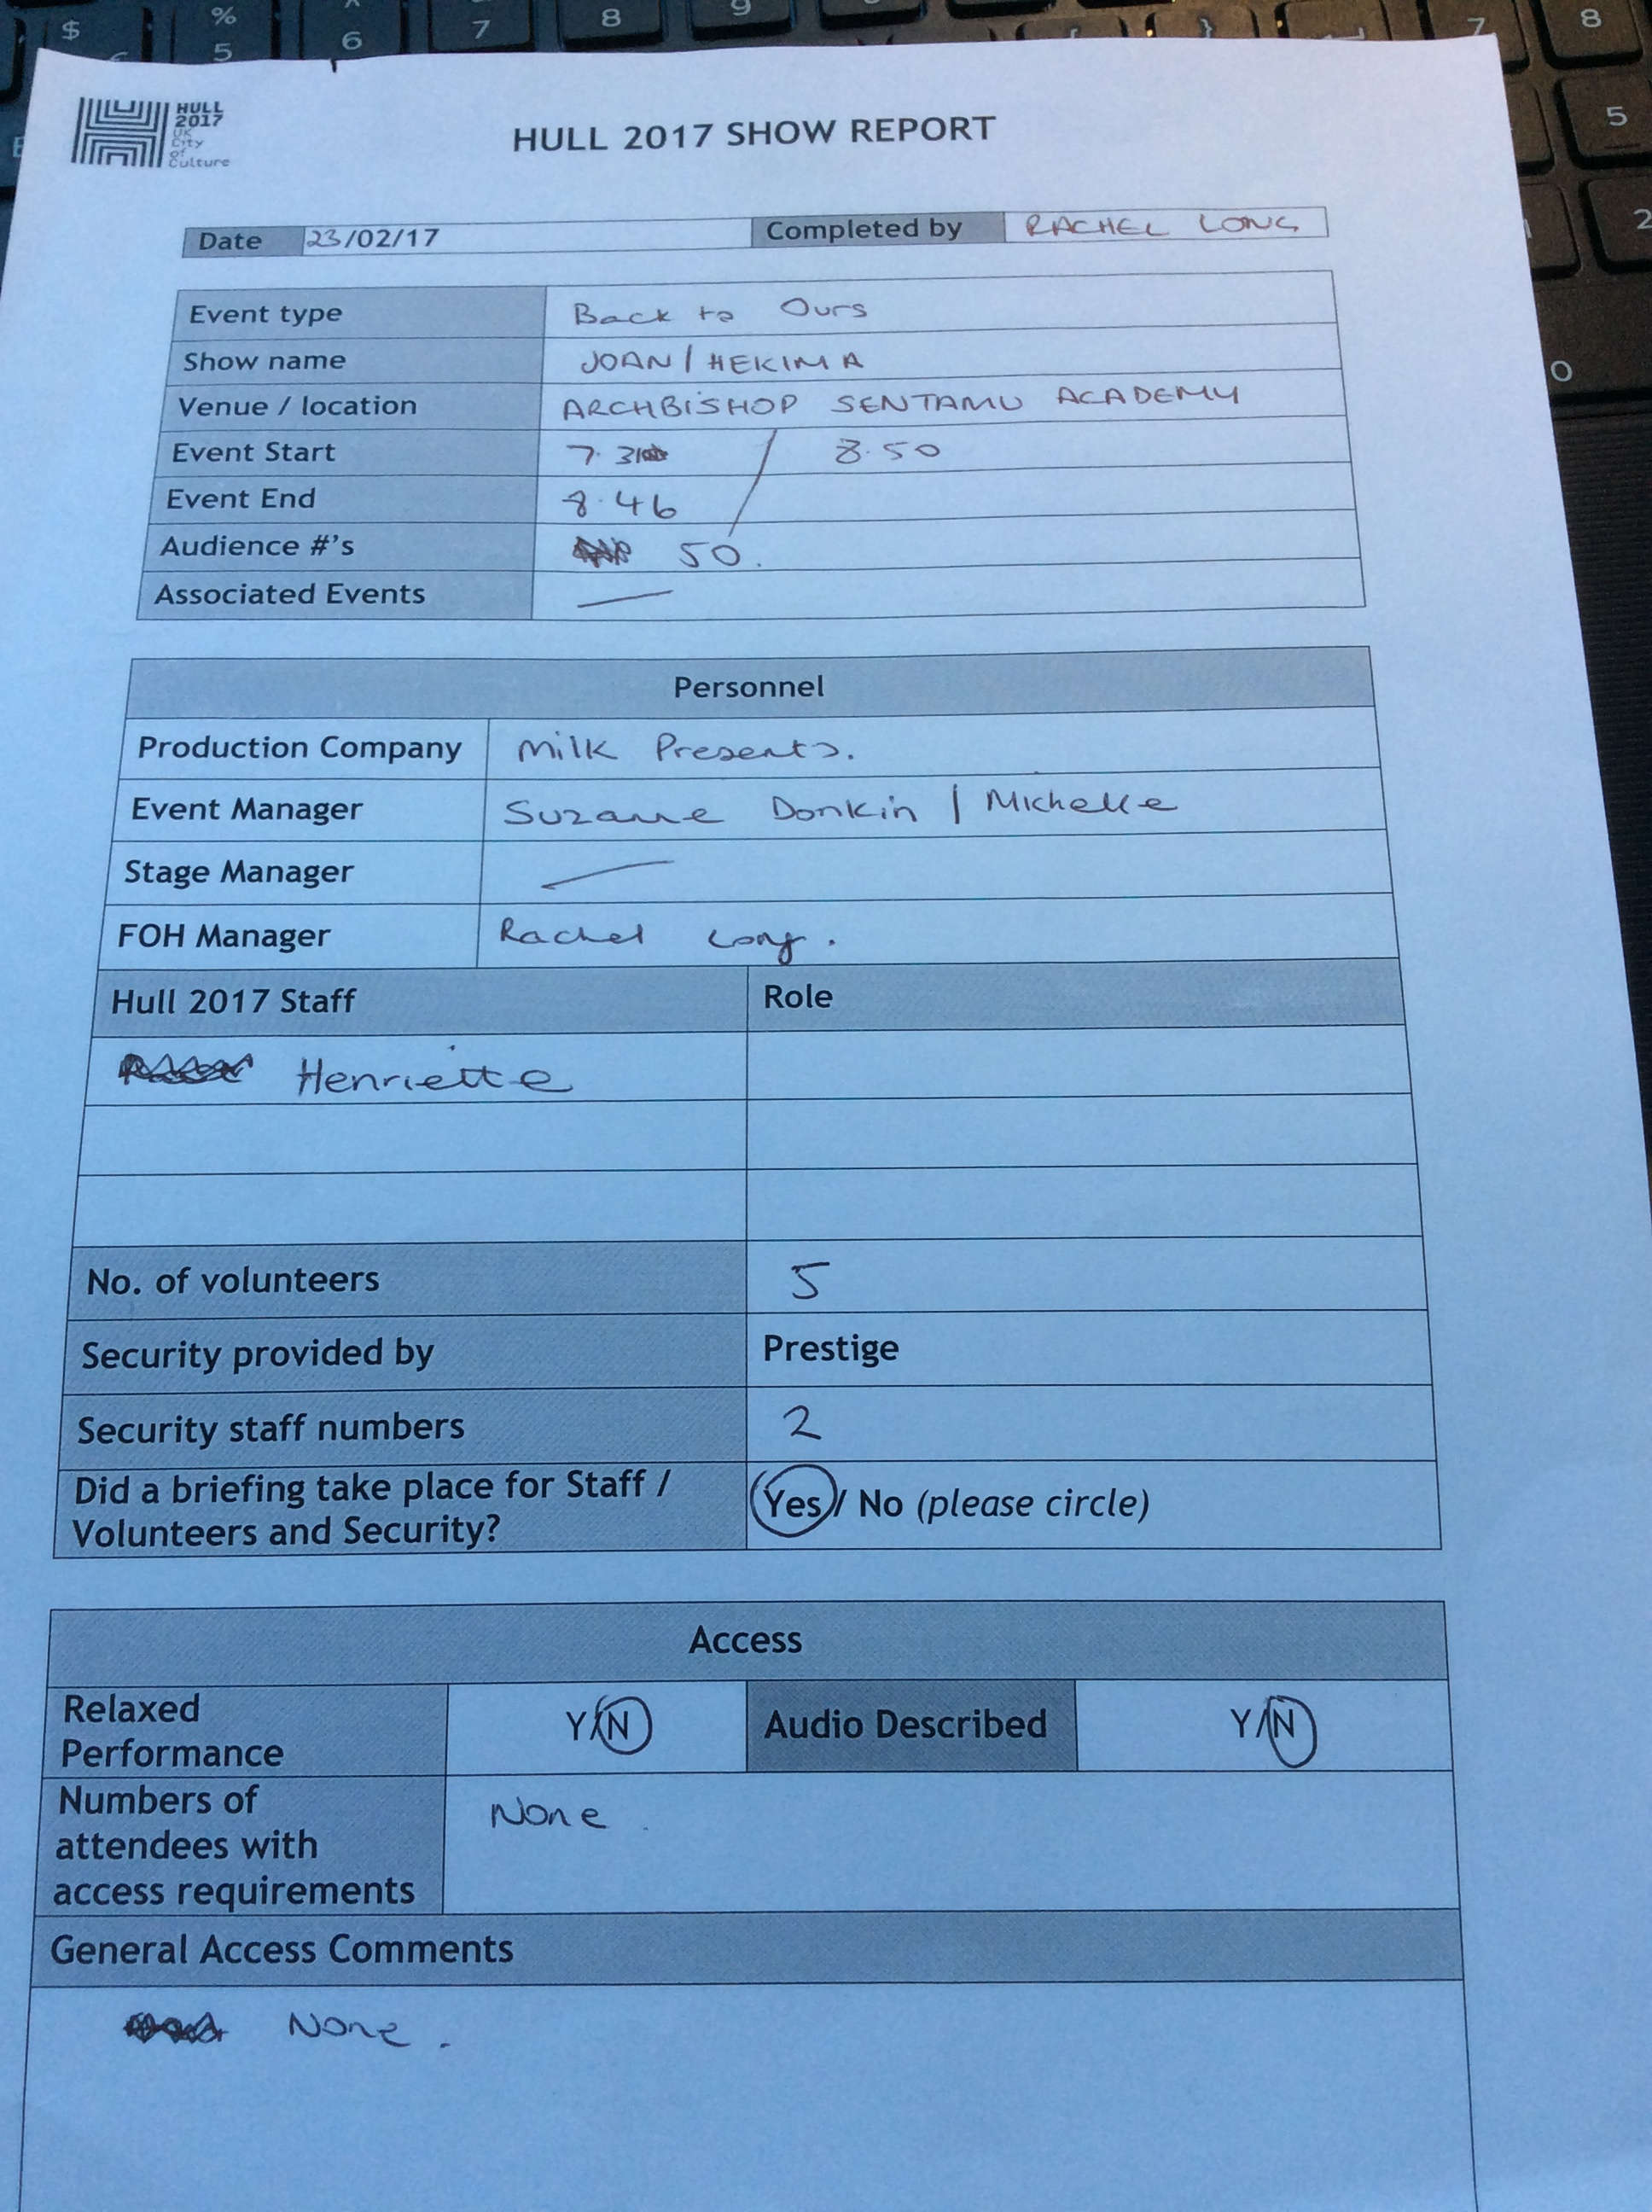 HULL 2017 UK City of Culture
HULL 2017 SHOW REPORT
Date 23/02/17 Completed by RACHEL LONG
Event type Back to Ours
Show name JOAN / HEKIMA
Venue / location ARCHBISHOP SENTAMU ACADEMY
Event Start 7.31 / 8.50
Event End 8.46
Audience #'s 50.
Associated Events —
Personnel
Production Company Milk Presents.
Event Manager Suzanne Donkin / Michelle
Stage Manager —
FOH Manager Rachel Long.
Hull 2017 Staff Role
Henriette
No. of volunteers 5
Security provided by Prestige
Security staff numbers 2
Did a briefing take place for Staff / Yes / No (please circle)
Volunteers and Security?
Access
Relaxed Performance Y/N Audio Described Y/N
Numbers of None
attendees with
access requirements
General Access Comments
None.